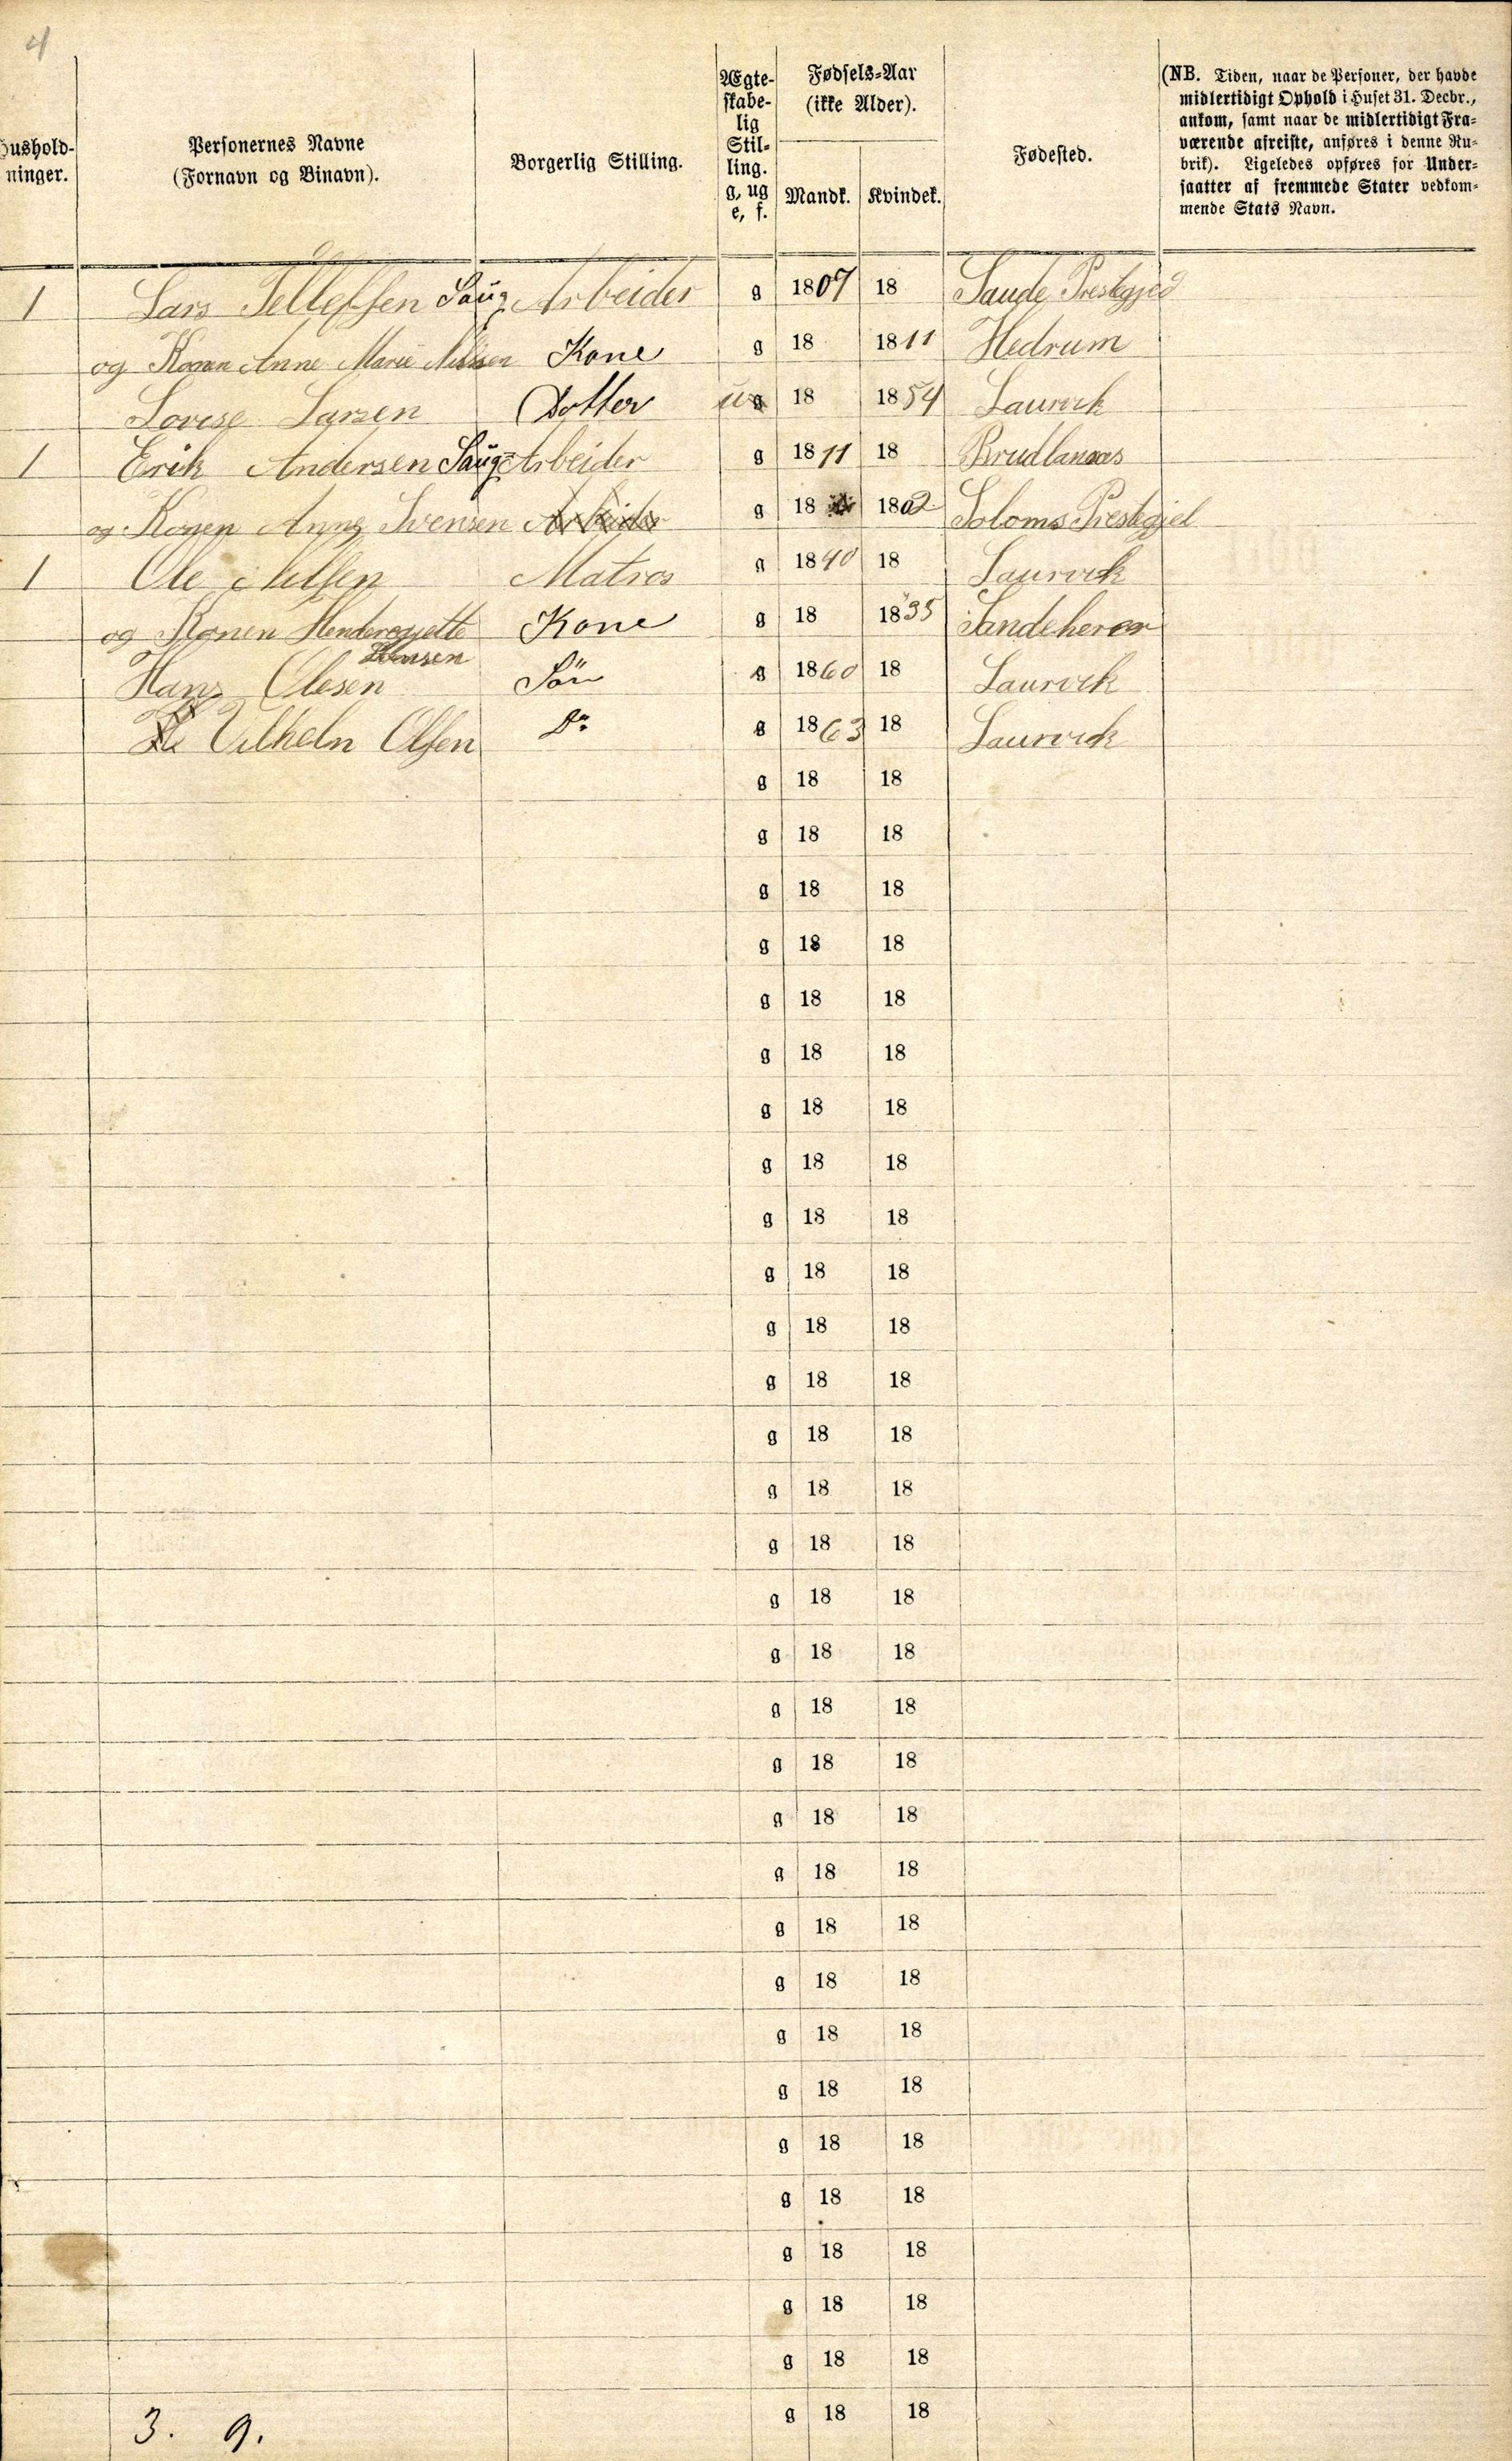 4
Hushold-
ninger.
Personernes Navne
(Fornavn og Binavn).
Borgerlig Stilling.
Ægte-
skabe-
lig
Stil-
ling.
g, ug
e, f.
Fødsels-Aar
(ikke Alder).
Mandk. Kvindek.
Fødested.
(NB. Tiden, naar de Personer, der havde
midlertidigt Ophold i Huset 31. Decbr.,
ankom, samt naar de midlertidigt Fra-
værende afreiste, anføres i denne Ru-
brik). Ligeledes opføres for Under-
saatter af fremmede Stater vedkom-
mende Stats Navn.
1 Lars Tellefsen Saug Arbeider g 1807 18 Saude Prestegjed
og Konen Anne Marie Nilsen Kone g 18 1811 Hedrum
Lovise Larsen Dotter ug 18 1854 Laurvik
1 Erik Andersen Saug-Arbeider g 1811 18 Brudlanæs
og Konen Anne Svensen Arbeider g 18 1802 Soloms Prestegjel
1 Ole Nilsen Matros g 1840 18 Laurvik
og Konen Henderegjette Kone g 18 1835 Sandeherer
Hensen
Hans Olesen Sön g 1860 18 Laurvik
Vilhelm Olsen Do g 1863 18 Laurvik
g 18 18
g 18 18
g 18 18
g 18 18
g 18 18
g 18 18
g 18 18
g 18 18
g 18 18
g 18 18
g 18 18
g 18 18
g 18 18
g 18 18
g 18 18
g 18 18
g 18 18
g 18 18
g 18 18
g 18 18
g 18 18
g 18 18
g 18 18
g 18 18
g 18 18
g 18 18
g 18 18
g 18 18
g 18 18
g 18 18
g 18 18
3. 9.